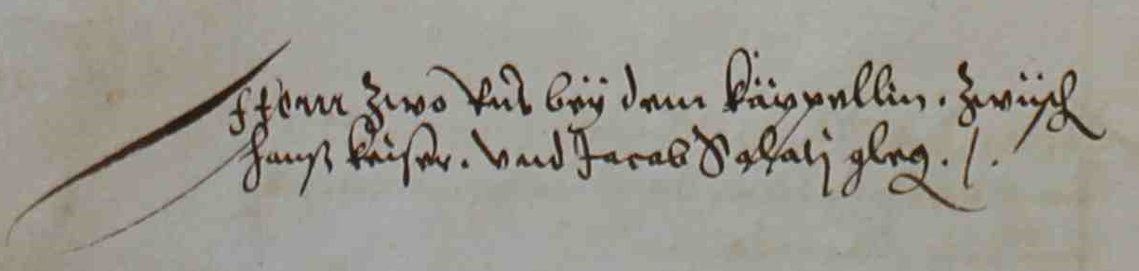 Item zwo Růt beÿ dem käppellin. zwüsch
hanß keiser. vnd Jacob Schatz gleg. /.